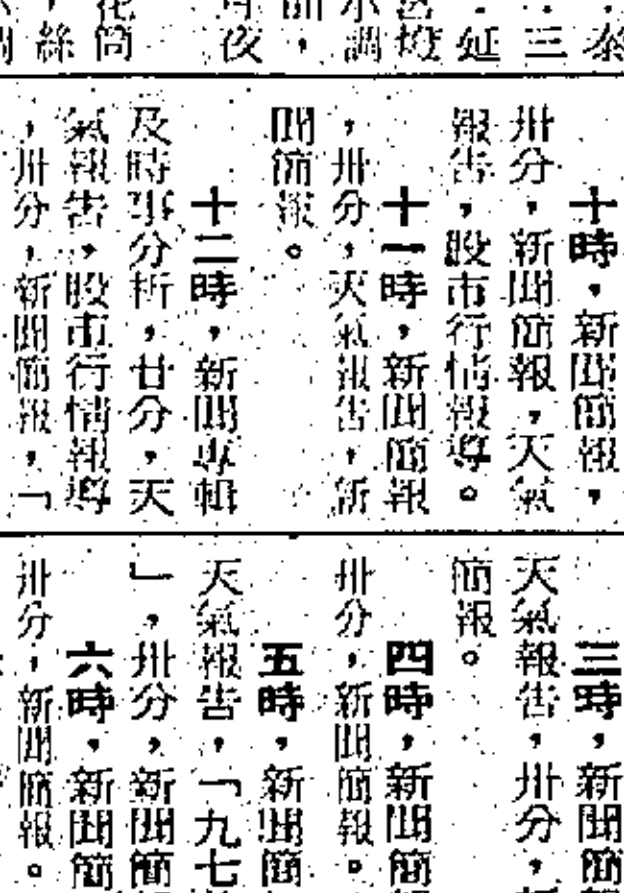 泰
三
延
燈
小調
夜
花筒
絲
調
十時，新聞簡報，
卅分，新聞簡報，天氣
報告，股市行情報導。
十一時，新聞簡報
，卅分，天氣報告，新
聞簡報。
十二時，新聞專輯
及時事分析，廿分，天
氣報告，股市行情報導
，卅分，新聞簡報，「
三時，新聞簡
天氣報告，卅分，
簡報。
四時，新聞簡
卅分，新聞簡報。
五時，新聞簡
天氣報告，「九七
」，卅分，新聞簡
六時，新聞簡
卅分，新聞簡報。